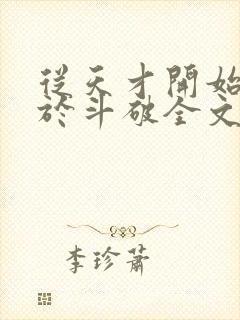 從天才開始
於斗破全文
李珍蕭